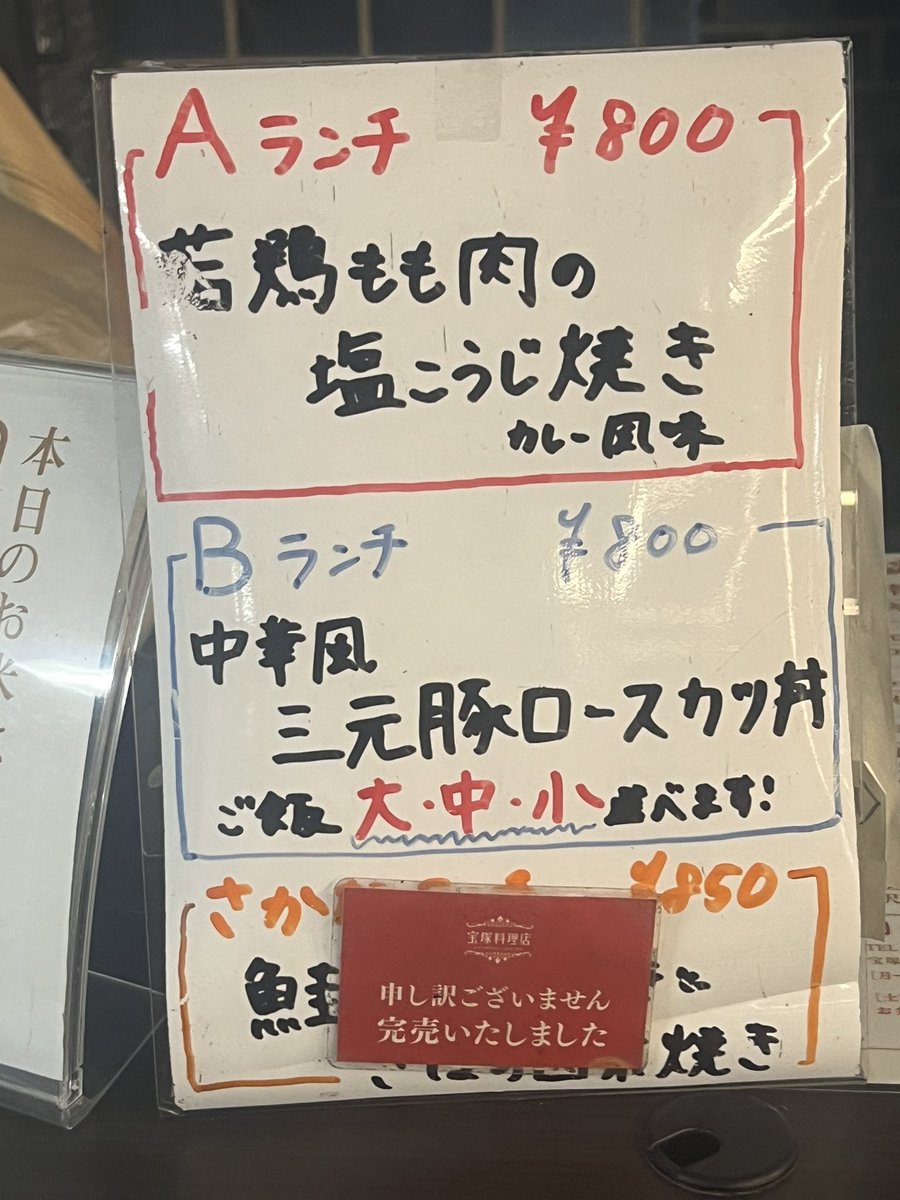 A ランチ ¥800
若鶏もも肉の
塩こうじ焼き
カレー風味
B ランチ ¥800
中華風
三元豚ロースカツ丼
ご飯 大・中・小 選べます!
さか ¥850
鮭
焼き
宝塚料理店
申し訳ございません
完売いたしました
本日のお米